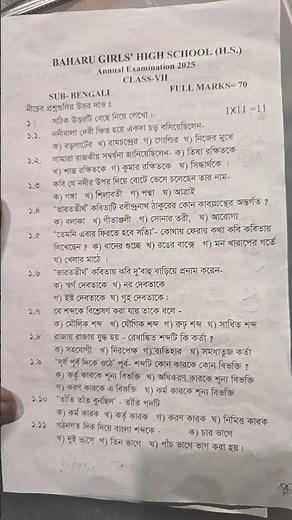 BAHARU GIRLS' HIGH SCHOOL (H.S.)
Annual Examination 2025
CLASS-VII
SUB- BENGALI FULL MARKS= 70
নীচের প্রশ্নগুলির উত্তর দাও ঃ
১। সঠিক উত্তরটি বেছে নিয়ে লেখো।- 1X11 =1]
১.১. নদীবালা দেবী ক্ষিপ্ত হয়ে একলা চড় বসিয়েছিলেন-
ক) বড়লাটের খ) রামচন্দ্রের গ) গোষ্ঠির ঘ) নিজের মুখে
১.২. লামারা রাজকীয় সম্বর্ধনা জানিয়েছিলেন- ক) তিষ্য রক্ষিতকে
খ) শান্ত রক্ষিতকে গ) কুমার রক্ষিতকে ঘ) সিদ্ধার্থকে ।
১.৩ কবি যে নদীর উপর দিয়ে বোটে ভেসে চলেছেন তার নাম-
ক) গঙ্গা খ) শিলাবতী গ) পদ্মা ঘ) আত্রাই
১.৪ 'ভারততীর্থ' কবিতাটি রবীন্দ্রনাথ ঠাকুরের কোন কাব্যগ্রন্থের অন্তর্গত ?
ক) বলাকা খ) গীতাঞ্জলী গ) সোনার তরী, ঘ) আরোগ্য
১.৫ 'তেমনি এবার ফিরতে হবে সত্যি'- কোথায় ফেরার কথা কবি কবিতায়
লিখেছেন ? ক) ধানের গুচ্ছে খ) রঙের বাক্সে গ) মন খারাপের গর্তে
ঘ) খেলার মাঠে
১.৬ 'ভারততীর্থ' কবিতায় কবি দু'বাহু বাড়িয়ে প্রনাম করেন-
ক) স্বর্গ দেবতাকে খ) নর দেবতাকে
গ) ইষ্ট দেবতাকে ঘ) গৃহ দেবতাকে।
১.৭ যে শব্দকে বিশ্লেষণ করা যায় তাকে বলে -
ক) মৌলিক শব্দ খ) যৌগিক শব্দ গ) রুঢ় শব্দ ঘ) সাধিত শব্দ
১.৮ রাজায় রাজায় যুদ্ধ হয় - রেখাঙ্কিত শব্দটি কি কর্তা ?
ক) সহযোগী খ) নিরপেক্ষ গ)ব্যতিহার ঘ) সমধাতুজ কর্তা
১.৯ 'সূর্য পূর্ব দিকে ওঠে' পূর্ব- শব্দটি কোন কারকে কোন বিভক্তি ?
ক) কর্তৃ কারকে শূন্য বিভক্তি খ) অধিকরণ কারকে শূন্য বিভক্তি
গ) করণ কারকে এ বিভক্তি ঘ) কর্ম কারকে শূন্য বিভক্তি
১.১০ 'তাঁতি তাঁত বুনছিল' - তাঁতি পদটি
ক) কর্ম কারক খ) কর্তৃ কারক গ) করণ কারক ঘ) নিমিত্ত কারক
১.১১ গঠনগত দিক দিয়ে বাংলা শব্দকে - ক) চার ভাগে
খ) দুই ভাগে গ) তিন ভাগে ঘ) পাঁচ ভাগে ভাগ করা হয়।